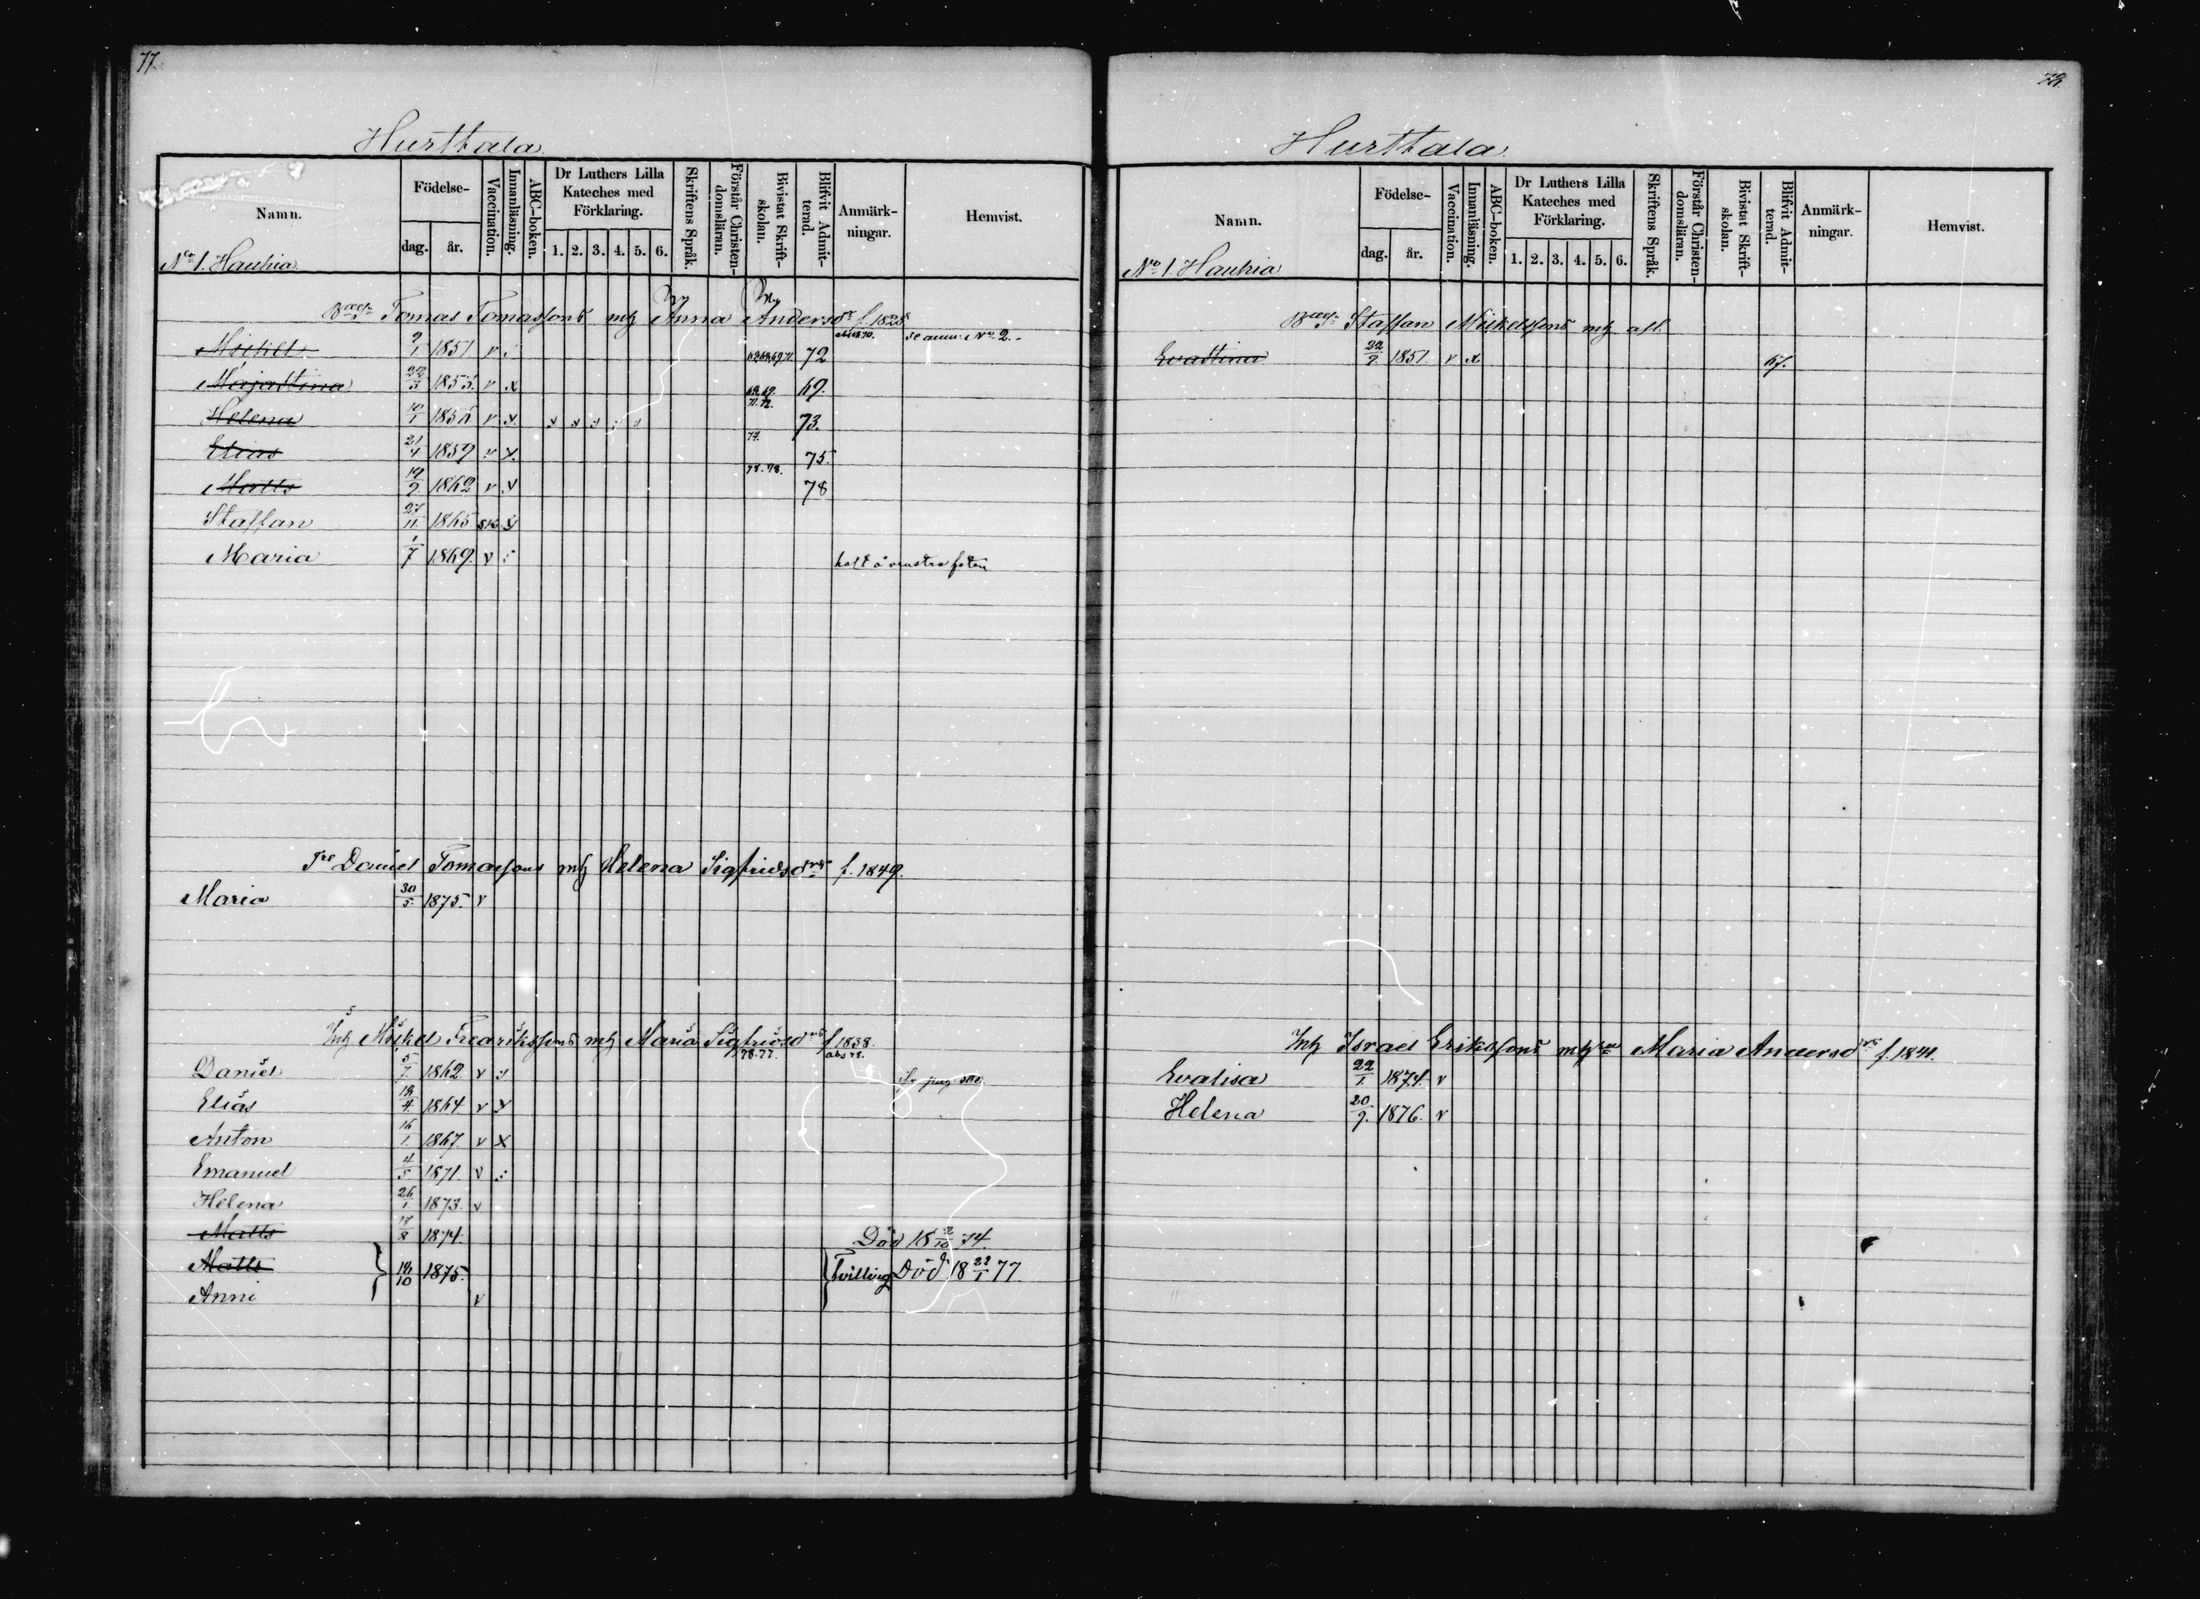 77.
Hurttala
Namn. Födelse- dag. år. Vaccination. Innanläsning. ABC-boken. Dr Luthers Lilla Kateches med Förklaring. 1. 2. 3. 4. 5. 6. Skriftens Språk. Förstår Christendomsläran. Bivistat Skriftskolan. Blifvit Admitterad. Anmärkningar. Hemvist.
No 1. Hauhia
Tomas Tomassons Anna Andersdr f. 1825
Mickel 2/1 1851 v 72 No 2.
Majastina 22/3 1853. v x 69.
Helena 10/1 185 v x 73.
Elias 21/4 1859 v x 77. 75.
Matts 19/9 1862 v x 78
Staffan 27/11 1865 x
Maria 1/7 1869. v halt å venstra foten
Daniel Tomassons Helena Sigfridsdr f. 1849.
Maria 30/5 1875. v
Mickel Fredrikssons Maria Sigfridsdr f 1838.
78.77.
Daniel 5/7 1862 v
Elias 18/4 1864 v x
Anton 16/1. 1867. v x
Emanuel 4/5 1871. v
Helena 26/1 1873. v
Matts 17/8 1874. Död 18 2/10 74.
Matts 18/10 1875. Tvilling Död 18 22/1 77
Anni v
78.
Hurttala
Namn. Födelse- dag. år. Vaccination. Innanläsning. ABC-boken. Dr Luthers Lilla Kateches med Förklaring. 1. 2. 3. 4. 5. 6. Skriftens Språk. Förstår Christendomsläran. Bivistat Skriftskolan. Blifvit Admitterad. Anmärkningar. Hemvist.
No 1. Hauhia
Staffan Mickelssons
Evastina 22/9 1851 v x 67.
Israel Erikssons Maria Andersdr f. 1841.
Evalisa 22/1 1874 v
Helena 20/9. 1876. v